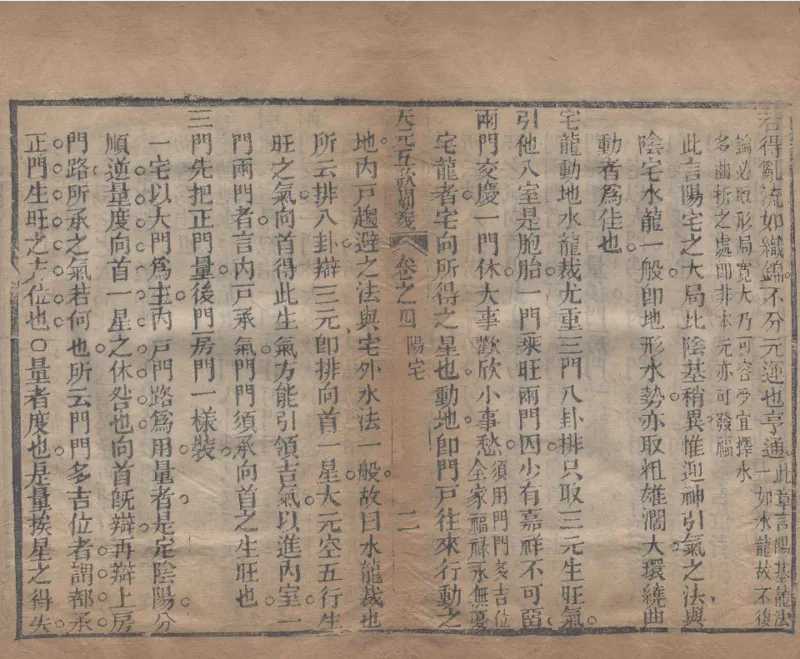 若得亂流如織錦不分元運也亨通此章言陽基龍法
一如水龍故不復
論必取形局寬大乃可容受宜擇水
多曲折之處即非本元亦可發福
此言陽宅之大局比陰基稍異惟迎神引氣之法與
陰宅水龍一般即地形水勢亦取粗雄濶大環繞曲
動者爲佳也
宅龍動地水龍裁尤重三門八卦排只取三元生旺氣
引他入室是胞胎一門乘旺兩門囚少有嘉祥不可留
兩門交慶一門休大事歡欣小事愁須用門門多吉位
全家福祿永無憂
宅龍者宅向所得之星也動地即門戶往來行動之
天元五歌闡義 卷之四 陽宅 二
地內戶趨避之法與宅外水法一般故曰水龍裁也
所云排八卦辯三元即排向首一星大元空五行生
旺之氣向首得此生氣方能引領吉氣以進內室一
門兩門者言內戶承氣門門須承向首之生旺也
三門先把正門量後門房門一樣裝
一宅以大門爲主內戶門路爲用量者是定陰陽分
順逆量度向首一星之休咎也向首既辯再辯上房
門路所承之氣若何也所云門門多吉位者謂都承
正門生旺之方位也○量者度也是量挨星之得失